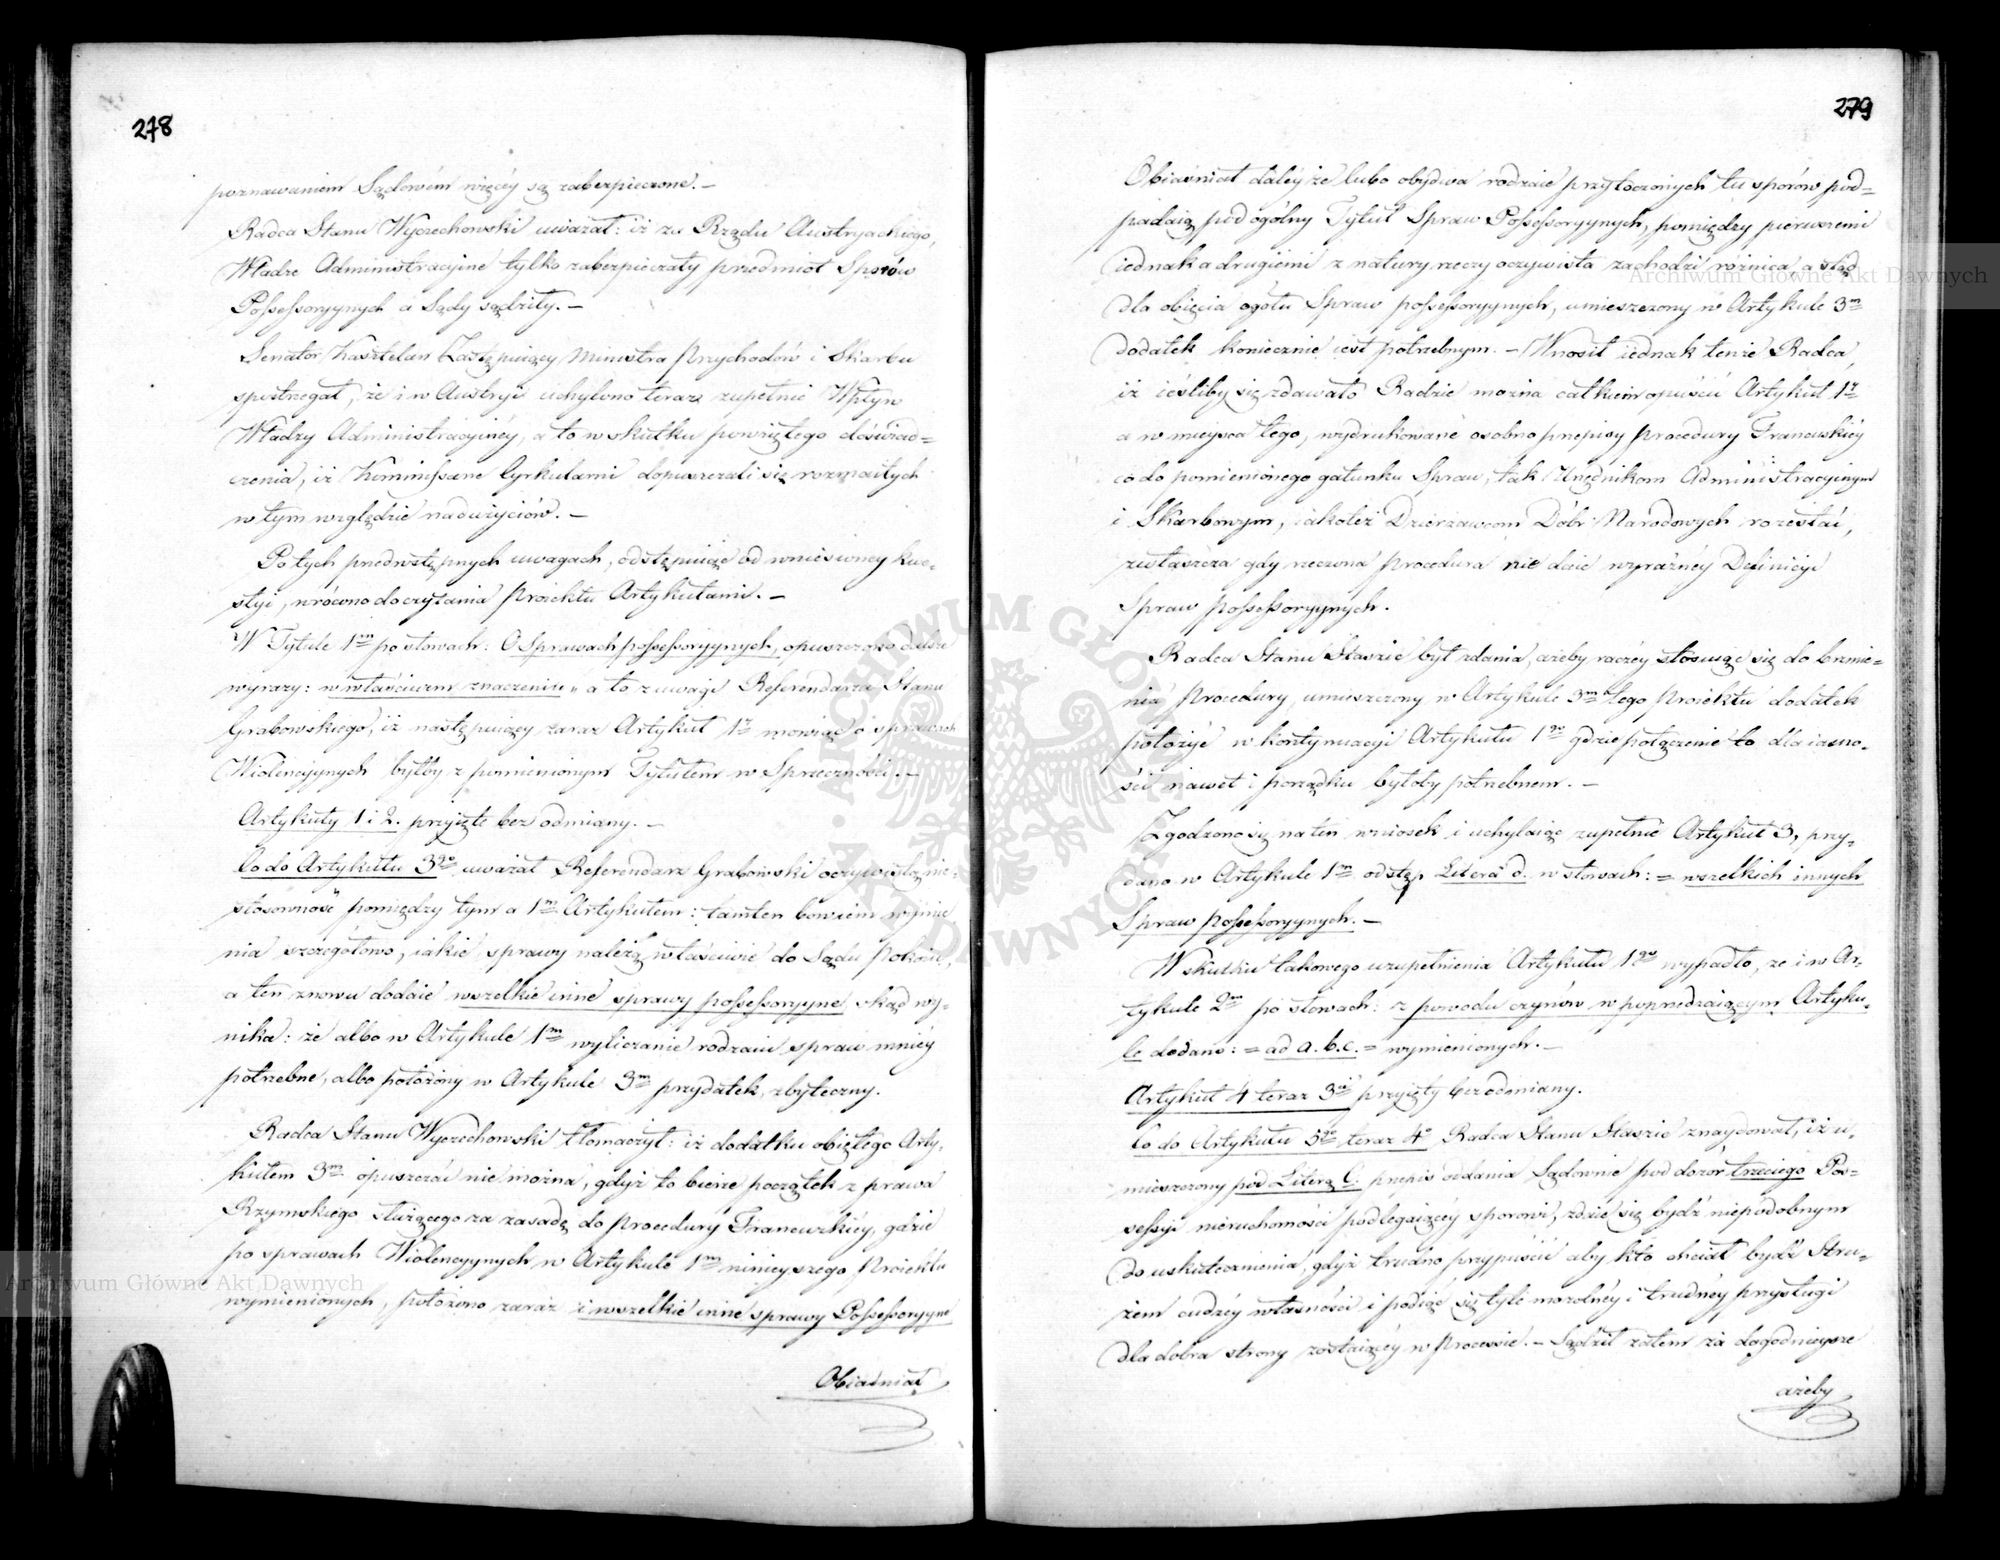 278
poznawaniem Sądowém więcéy są zabezpieczone. –
Radca Stanu Wyczechowski uważał: iż za Rządu Austryackiego,
Władze Administracyine tylko zabezpieczały przedmiot Sporów
Possessoryynych a Sądy sądziły. –
Senator Kasztelan Zastępuiący Ministra Przychodów i Skarbu
spostrzegał, że i w Austryi uchylono teraz zupełnie Wpływ
Władzy Administracyinéy, a to w skutku powziętego doświad=
czenia, iż Kommissarze Cyrkularni dopuszczali się rozmaitych
w tym względzie nadużyciów. –
Po tych przedwstępnych uwagach, odstępuiąc od wniesioney kwe=
styi, wrócono do czytania Proiektu Artykułami. –
W Tytule 1m po słowach: O Sprawach possessoryynych, opuszczono dalsze
wyrazy: w właściwem znaczeniu, a to z uwagi Referendarza Stanu
Grabowskiego, iż następuiący zaraz Artykuł 1y mowiąc o sprawach
Wiolencyynych byłby z pomienionym Tytułem w Sprzeczności. –
Artykuły 1 i 2. przyięte bez odmiany. –
Co do Artykułu 3go uważał Referendarz Grabowski oczywistą nie=
stosowność pomiędzy tym a 1m Artykułem: tamten bowiem wymie
nia szczegółowo, iakie sprawy należą właściwie do Sądu Pokoiu,
a ten znowu dodaie wszelkie inne sprawy possessoryyne, skąd wy=
nika: że albo w Artykule 1m wyliczanie rodzaiu spraw mniéy
potrzebne, albo położony w Artykule 3m przydatek, zbyteczny.
Radca Stanu Wyczechowski tłomaczył: iż dodatku obiętego Arty=
kułem 3m opuszczać nie można, gdyż to bierze początek z prawa
Rzymskiego służącego za zasadę do Procedury Francuzkiéy, gdzie
po sprawach Wiolencyynych w Artykule 1m ninieyszego Proiektu
wymienionych, położono zaraz i wszelkie inne sprawy Possessoryyne
Obiaśniał
279
Obiaśniał daléy że lubo obydwa rodzaie przytoczonych tu sporów pod=
padaią pod ogólny Tytuł Spraw Possessoryynych, pomiędzy pierwszemi
iednak a drugiemi z natury rzeczy oczywista zachodzi różnica, a stąd
dla obięcia ogółu Spraw possessoryynych, umieszczony w Artykule 3m
dodatek koniecznie iest potrzebnym. – Wnosił iednak tenże Radca,
iż ieśliby się zdawało Radzie można całkiem opuścić Artykuł 1y
a w mieysce tego, wydrukowane osobno przepisy Procedury Francuskiéy
co do pomienionego gatunku Spraw, tak Urzędnikom Administracyinym
i Skarbowym, iakoteż Dzierżawcom Dóbr Narodowych rozesłać,
zwłaszcza gdy rzeczona Procedura nie daie wyraźnéy Definicyi
Spraw possessoryynych.
Radca Stanu Staszic był zdania, ażeby raczéy stosuiąc się do brzmie=
nia Procedury, umieszczony w Artykule 3m tego Proiektu dodatek
położyć w kontynuacyi Artykułu 1go gdzie połączenie to dla iasno=
ści nawet i porządku byłoby potrzebnem. –
Zgodzono się na ten wniosek i uchylaiąc zupełnie Artykuł 3, przy=
dano w Artykule 1m odstęp Litera d. w słowach: = wszelkich innych
Spraw possessoryynych. –
W skutku takowego uzupełnienia Artykułu 1go wypadło, że i w Ar=
tykule 2m po słowach: z powodu czynów w poprzedzaiącym Artyku=
le dodano: = ad a. b. c. = wymienionych. –
Artykuł 4 teraz 3ci przyięty bez odmiany.
Co do Artykułu 5go teraz 4o Radca Stanu Staszic znaydował, iż u=
mieszczony pod Literą C. przepis oddania Sądownie pod dozór trzeciego Pos=
sessyi nieruchomości podlegaiącéy sporowi, zdaie się bydź niepodobnym
do uskutecznienia, gdyż trudno przypuścić aby kto chciał bydź Stru=
żem cudzéy własności i podiąć się tyle mozolnéy i trudnéy przysługi
dla dobra strony zostaiącéy w Processie. – Sądził zatem za dogodnieysze
ażeby
ARCHIWUM GŁÓWNE AKT DAWNYCH
Archiwum Główne Akt Dawnych
Archiwum Główne Akt Dawnych